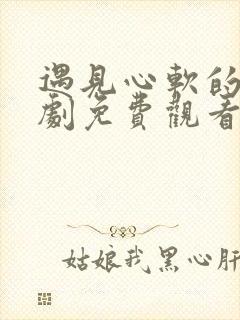 遇見心軟的
劇免費觀看
姑娘我黑心肝